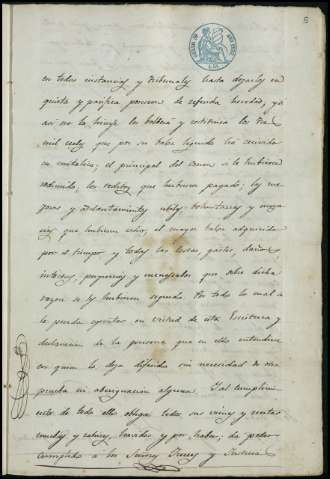 en todas instancias y tribunales hasta dejarles en
quieta y pacifica posesion de referida heredad, y si
asi no lo hiciese les bolberá y restituirá los
mil reales que por su valor liquido ha recibido
en metalico; el principal del censo si le hubieren
redimido, los reditos que hubieren pagado; las me
joras y adelantamientos utiles, voluntarias y
que hubieren echo; el mayor valor adquirido
por el tiempo y todas las costas, gastos, daños,
intereses, perjuicios y menoscabos que sobre dicha
razon se les hubieren seguido. Por todo lo cual se
le pueda ejecutar en virtud de esta Escritura y
declaracion de la persona que en ello entendiere
en quien lo deja diferido sin necesidad de otra
prueba ni aberiguacion alguna. Y al cumplimi
ento de todo ello obliga todos sus vienes y rentas
muebles y raices, havidos y por haber; da poder
cumplido á los Señores Jueces y Justicia